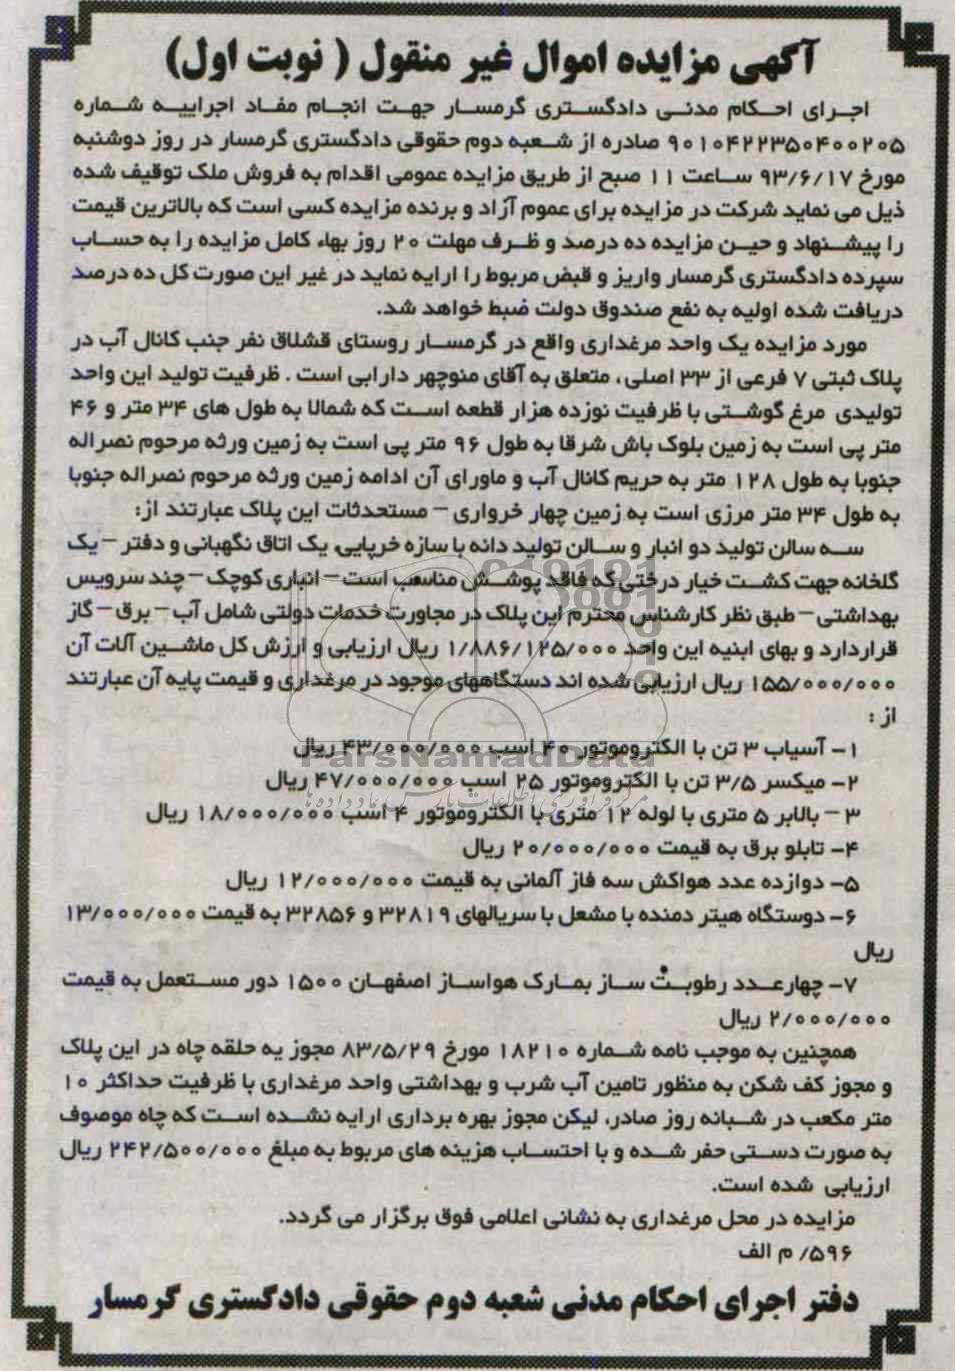 آگهی مزایده اموال غیر منقول ( نوبت اول)
اجرای احکام مدنی دادگستری گرمسار جهت انجام مفاد اجراییه شماره
۹۰۱۰۴۲۲۳۵۰۴۰۰۲۰۵ صادره از شعبه دوم حقوقی دادگستری گرمسار در روز دوشنبه
مورخ ۹۳/۶/۱۷ ساعت ۱۱ صبح از طریق مزایده عمومی اقدام به فروش ملک توقیف شده
ذیل می نماید شرکت در مزایده برای عموم آزاد و برنده مزایده کسی است که بالاترین قیمت
را پیشنهاد و حین مزایده ده درصد و ظرف مهلت ۲۰ روز بهاء کامل مزایده را به حساب
سپرده دادگستری گرمسار واریز و قبض مربوط را ارایه نماید در غیر این صورت کل ده درصد
دریافت شده اولیه به نفع صندوق دولت ضبط خواهد شد.
مورد مزایده یک واحد مرغداری واقع در گرمسار روستای قشلاق نفر جنب کانال آب در
پلاک ثبتی ۷ فرعی از ۳۳ اصلی، متعلق به آقای منوچهر دارابی است . ظرفیت تولید این واحد
تولیدی مرغ گوشتی با ظرفیت نوزده هزار قطعه است که شمالا به طول های ۳۴ متر و ۴۶
متر پی است به زمین بلوک باش شرقا به طول ۹۶ متر پی است به زمین ورثه مرحوم نصراله
جنوبا به طول ۱۲۸ متر به حریم کانال آب و ماورای آن ادامه زمین ورثه مرحوم نصراله جنوبا
به طول ۳۴ متر مرزی است به زمین چهار خرواری – مستحدثات این پلاک عبارتند از:
سه سالن تولید دو انبار و سالن تولید دانه با سازه خرپایی، یک اتاق نگهبانی و دفتر – یک
گلخانه جهت کشت خیار درختی که فاقد پوشش مناسب است – انباری کوچک – چند سرویس
بهداشتی – طبق نظر کارشناس محترم این پلاک در مجاورت خدمات دولتی شامل آب – برق – گاز
قراردارد و بهای ابنیه این واحد ۱/۸۸۶/۱۲۵/۰۰۰ ریال ارزیابی و ارزش کل ماشین آلات آن
۱۵۵/۰۰۰/۰۰۰ ریال ارزیابی شده اند دستگاههای موجود در مرغداری و قیمت پایه آن عبارتند
از :
۱– آسیاب ۳ تن با الکتروموتور ۴۰ اسب ۴۳/۰۰۰/۰۰۰ ریال
ParsNamadData
۲– میکسر ۳/۵ تن با الکتروموتور ۲۵ اسب ۴۷/۰۰۰/۰۰۰ ریال
۳ – بالابر ۵ متری با لوله ۱۲ متری با الکتروموتور ۴ اسب ۱۸/۰۰۰/۰۰۰ ریال
۴– تابلو برق به قیمت ۲۰/۰۰۰/۰۰۰ ریال
۵– دوازده عدد هواکش سه فاز آلمانی به قیمت ۱۲/۰۰۰/۰۰۰ ریال
۶– دوستگاه هیتر دمنده با مشعل با سریالهای ۳۲۸۱۹ و ۳۲۸۵۶ به قیمت ۱۳/۰۰۰/۰۰۰
ریال
۷– چهارعدد رطوبت ساز بمارک هواساز اصفهان ۱۵۰۰ دور مستعمل به قیمت
۲/۰۰۰/۰۰۰ ریال
همچنین به موجب نامه شماره ۱۸۲۱۰ مورخ ۸۳/۵/۲۹ مجوز یه حلقه چاه در این پلاک
و مجوز کف شکن به منظور تامین آب شرب و بهداشتی واحد مرغداری با ظرفیت حداکثر ۱۰
متر مکعب در شبانه روز صادر، لیکن مجوز بهره برداری ارایه نشده است که چاه موصوف
به صورت دستی حفر شده و با احتساب هزینه های مربوط به مبلغ ۲۴۲/۵۰۰/۰۰۰ ریال
ارزیابی شده است.
مزایده در محل مرغداری به نشانی اعلامی فوق برگزار می گردد.
۵۹۶/ م الف
دفتر اجرای احکام مدنی شعبه دوم حقوقی دادگستری گرمسار